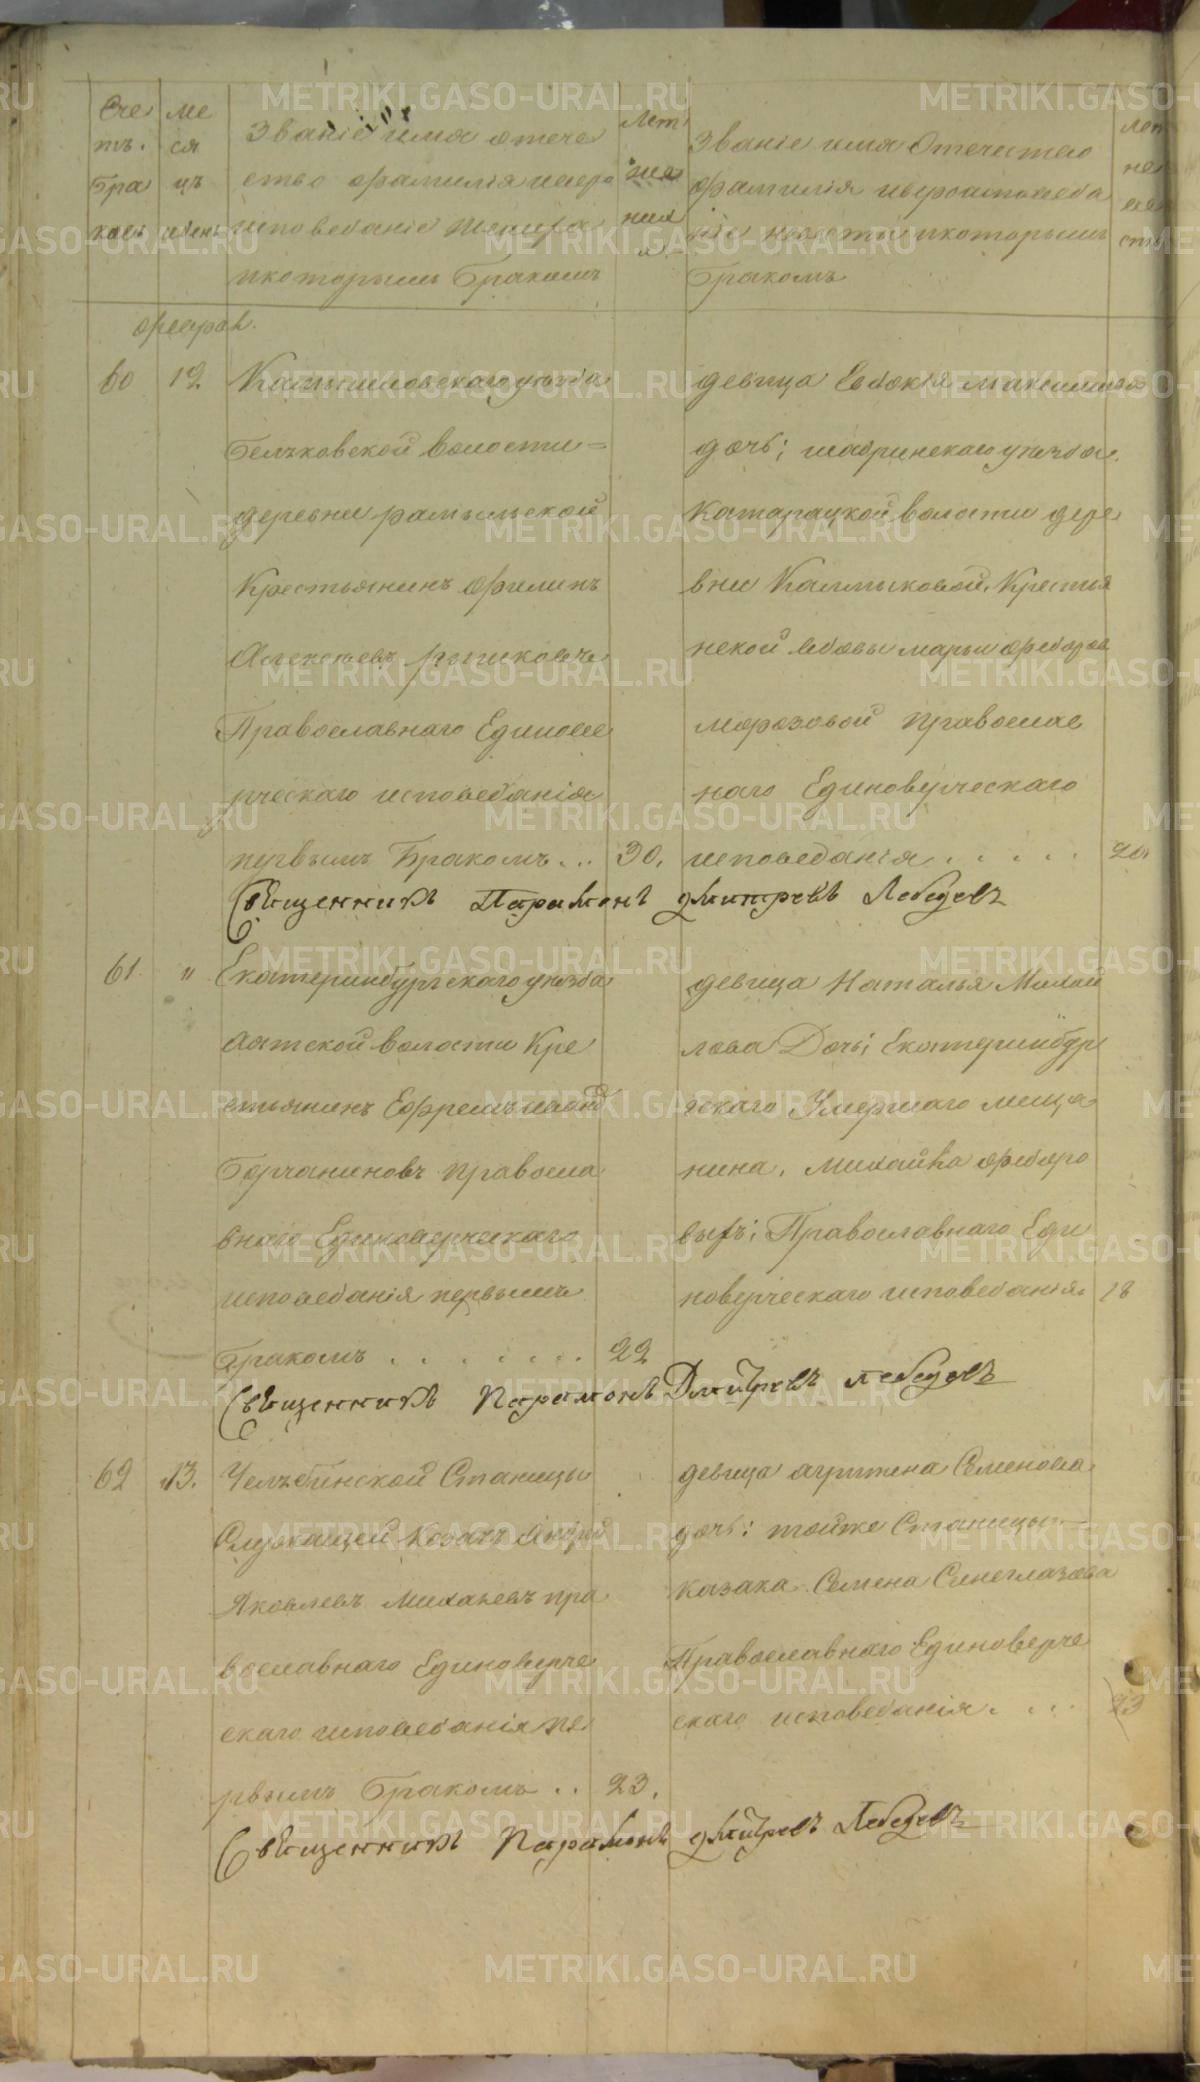 Сче
тъ.
бра
ковъ
ме
ся
цъ
и день
Званіе имя отече
ство фамилія и веро
исповеданіе жениха
и которымъ бракомъ
Лет
Званіе имя Отечество
фамилія и вероисповеда
ніе невесты и которымъ
бракомъ
феврал.
60 12 Камышловскаго уезда
Белъковской волости =
деревни
Крестьянинъ Филипъ
Алексеевъ
Православнаго Единове
рческаго исповеданія
первымъ Бракомъ... 30.
девица Евдокія Максимова
дочь; шадринскаго уезда
Катарацкой волости дере
вни Калмыковой, Крестья
нской вдовы Марьи Федоров
морозовой православ
наго Единоверческаго
исповеданія . . . . . 20
Священникъ Парамонъ Дмитревъ Лебедевъ
61 " Екатеринбургскаго уезда
Аятской волости Кре
стьянинъ Ефремъ
Горчаниновъ правосла
внаго Единоверческаго
исповеданія первымъ
бракомъ . . . . . . . . 22
девица Наталья Михай
лова Дочь; Екатеринбур
гскаго Умершаго меща
нина, Михайла Федоро
выхъ; Православнаго Еди
новерческаго исповеданія. 18
Священникъ Парамонъ Дмитревъ Лебедевъ
62 13. Челябинской Станицы
Служащей Козакъ Андрей
Яковлевъ Михалевъ пра
вославнаго Единоверче
скаго исповеданія пе
рвымъ бракомъ .. 23.
девица агрипена Семенова
дочь: тойже Станицы —
казака Семена Синеглазова
Православнаго Единоверче
скаго исповеданія. . . . 23
Священникъ Парамонъ Дмитревъ Лебедевъ
METRIKI.GASO-URAL.RU